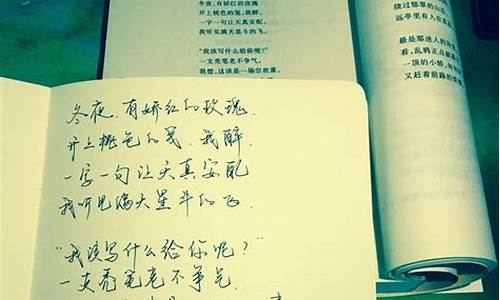 冬夜，有娇红的玫瑰
开上桃色的笺，我醉，
一字一句让天真安配，
我听见满天星斗的飞。
“我该写什么给你呢？”
一支秃笔老不争气。
我想，这该是一场空欢喜。
绕过郁郁的山
远亭里有人在
最是那迷人的
看，乱鸦正点破
一顶的小轿，
又赶着前路的
冬夜，有娇红的玫瑰，
开上桃色的笺，我醉，
一字一句让天真安配
我听见满天星斗的飞。
“我该写什么给你呢？”
一支秃笔老不争气。